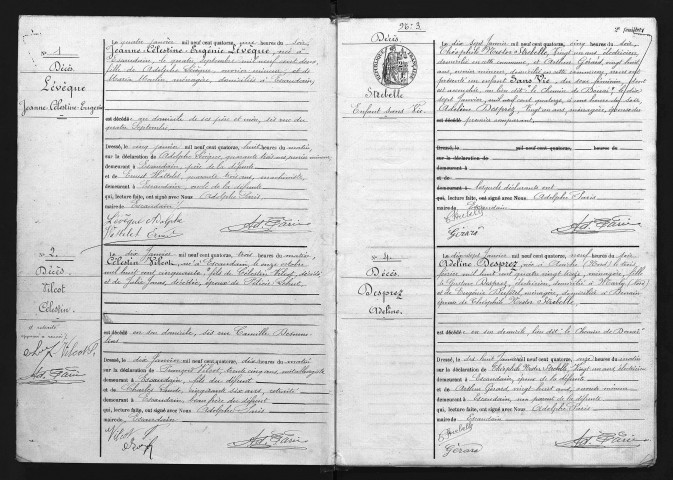 N° 1
Décès
Lévêque
Jeanne-Célestine-Eugénie
Le quatre janvier mil neuf cent quatorze, onze heures du soir,
Jeanne-Célestine-Eugénie Lévêque, née à
Escaudain, le quatre septembre mil neuf cent deux,
fille de Adolphe Lévêque, mineur, et de
Maria Martin, ménagère, domiciliés à Escaudain,
est décédée au domicile de ses père et mère, sis rue du
quatre Septembre.
Dressé, le cinq janvier mil neuf cent quatorze, heures du matin,
sur la déclaration de Adolphe Lévêque, quarante trois ans, mineur
demeurant à Escaudain, père de la défunte
et de Ernest Wattelet, quarante trois ans, machiniste,
demeurant à Escaudain, oncle de la défunte
qui, lecture faite, ont signé avec Nous Adolphe Paris
maire de Escaudain
Lévêque Adolphe
Wattelet Ernest
Ad. Paris
N° 2
Décès
Vilcot
Célestin
Vilcot F.
Ad. Paris
Le dix Janvier mil neuf cent quatorze, trois heures du matin,
Célestin Vilcot, né à Escaudain, le onze octobre
mil huit cent cinquante, fils de Célestin Vilcot, décédé
et de Julie décédée, époux de Félicie
est décédé en son domicile, sis rue Camille Desmou-
lins
Dressé, le dix Janvier mil neuf cent quatorze, heures du matin
sur la déclaration de Vilcot, trente cinq ans, métallurgiste
demeurant à Escaudain, fils du défunt
et de Charles ans, retraité
demeurant à Escaudain, beau frère du défunt
qui, lecture faite, ont signé avec Nous Adolphe Paris
maire de Escaudain
Vilcot F.
Ad. Paris
N° 3
Décès
Strebelle
Enfant sans Vie.
2e feuillet
Le dix sept Janvier mil neuf cent quatorze, cinq heures du soir,
Théophile Nestor Strebelle, vingt un ans, électricien,
domicilié en cette commune, et Arthur Gérard, vingt huit
ans, domicilié en cette commune, nous ont
présenté un enfant Sans Vie, du sexe féminin, dont
est accouchée, au lieu dit "le Chemin de Douai", le dix
sept Janvier, mil neuf cent quatorze, à heures du soir,
Adeline Desprez, vingt un ans, ménagère, épouse du
premier comparant.
Dressé, le mil neuf cent quatorze, heures du
sur la déclaration de
demeurant à
et de
demeurant à lesquels déclarants ont
qui, lecture faite, ont signé avec Nous Adolphe Paris
maire de Escaudain
Strebelle
Gérard
Ad. Paris
N° 4
Décès
Desprez
Adeline
Le dix sept Janvier mil neuf cent quatorze, neuf heures du soir,
Adeline Desprez, née à (Nord) le trois
février mil huit cent quatre vingt treize, ménagère, fille
de Gustave Desprez, électricien, domicilié à (Nord)
et de ménagère, domiciliée à Denain,
épouse de Théophile Nestor Strebelle,
est décédée en son domicile, lieu dit: "le Chemin de Douai"
Dressé, le dix huit Janvier mil neuf cent quatorze, onze heures du matin
sur la déclaration de Théophile Nestor Strebelle, vingt un ans, électricien
demeurant à Escaudain, époux de la défunte
et de Arthur Gérard, vingt huit ans,
demeurant à Escaudain, non parent de la défunte
qui, lecture faite, ont signé avec Nous Adolphe Paris
maire de Escaudain
Strebelle
Gérard
Ad. Paris